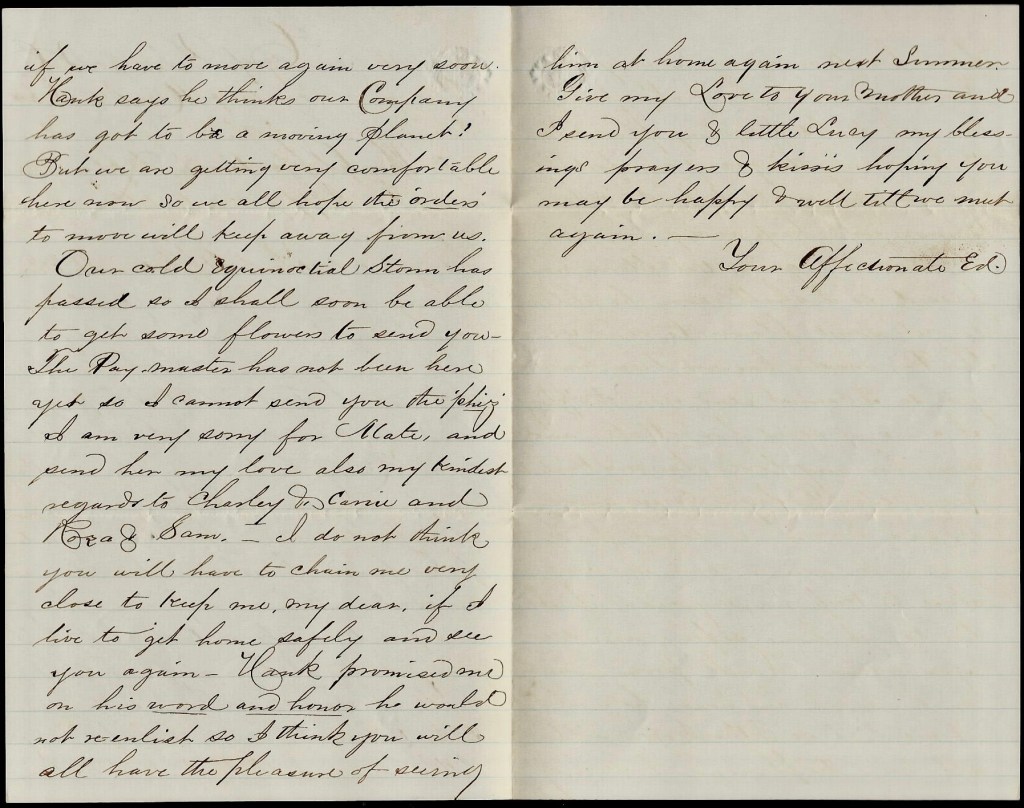 if we have to move again very soon.
Hank says he thinks our Company
has got to be a moving planet!
But we are getting very comfortable
here now so we all hope the 'orders'
to move will keep away from us.
Our cold equinoctial Storm has
passed so I shall soon be able
to get some flowers to send you-
The Pay-master has not been here
yet so I cannot send you the 'phiz'
I am very sorry for Mate, and
send her my love also my kindest
regards to Charley & Carrie and
& Sam. - I do not think
you will have to chain me very
close to keep me, my dear, if I
live to get home safely and see
you again - Hank promised me
on his word and honor he would
not re-enlist so I think you will
all have the pleasure of seeing
him at home again next Summer.
Give my Love to your Mother and
I send you & little Lucy my bless-
ings prayers & kiss's hoping you
may be happy & well till we meet
again. -
Your Affectionate Ed.